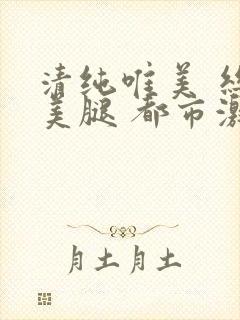 清纯唯美 丝
美腿 都市激
月土月土